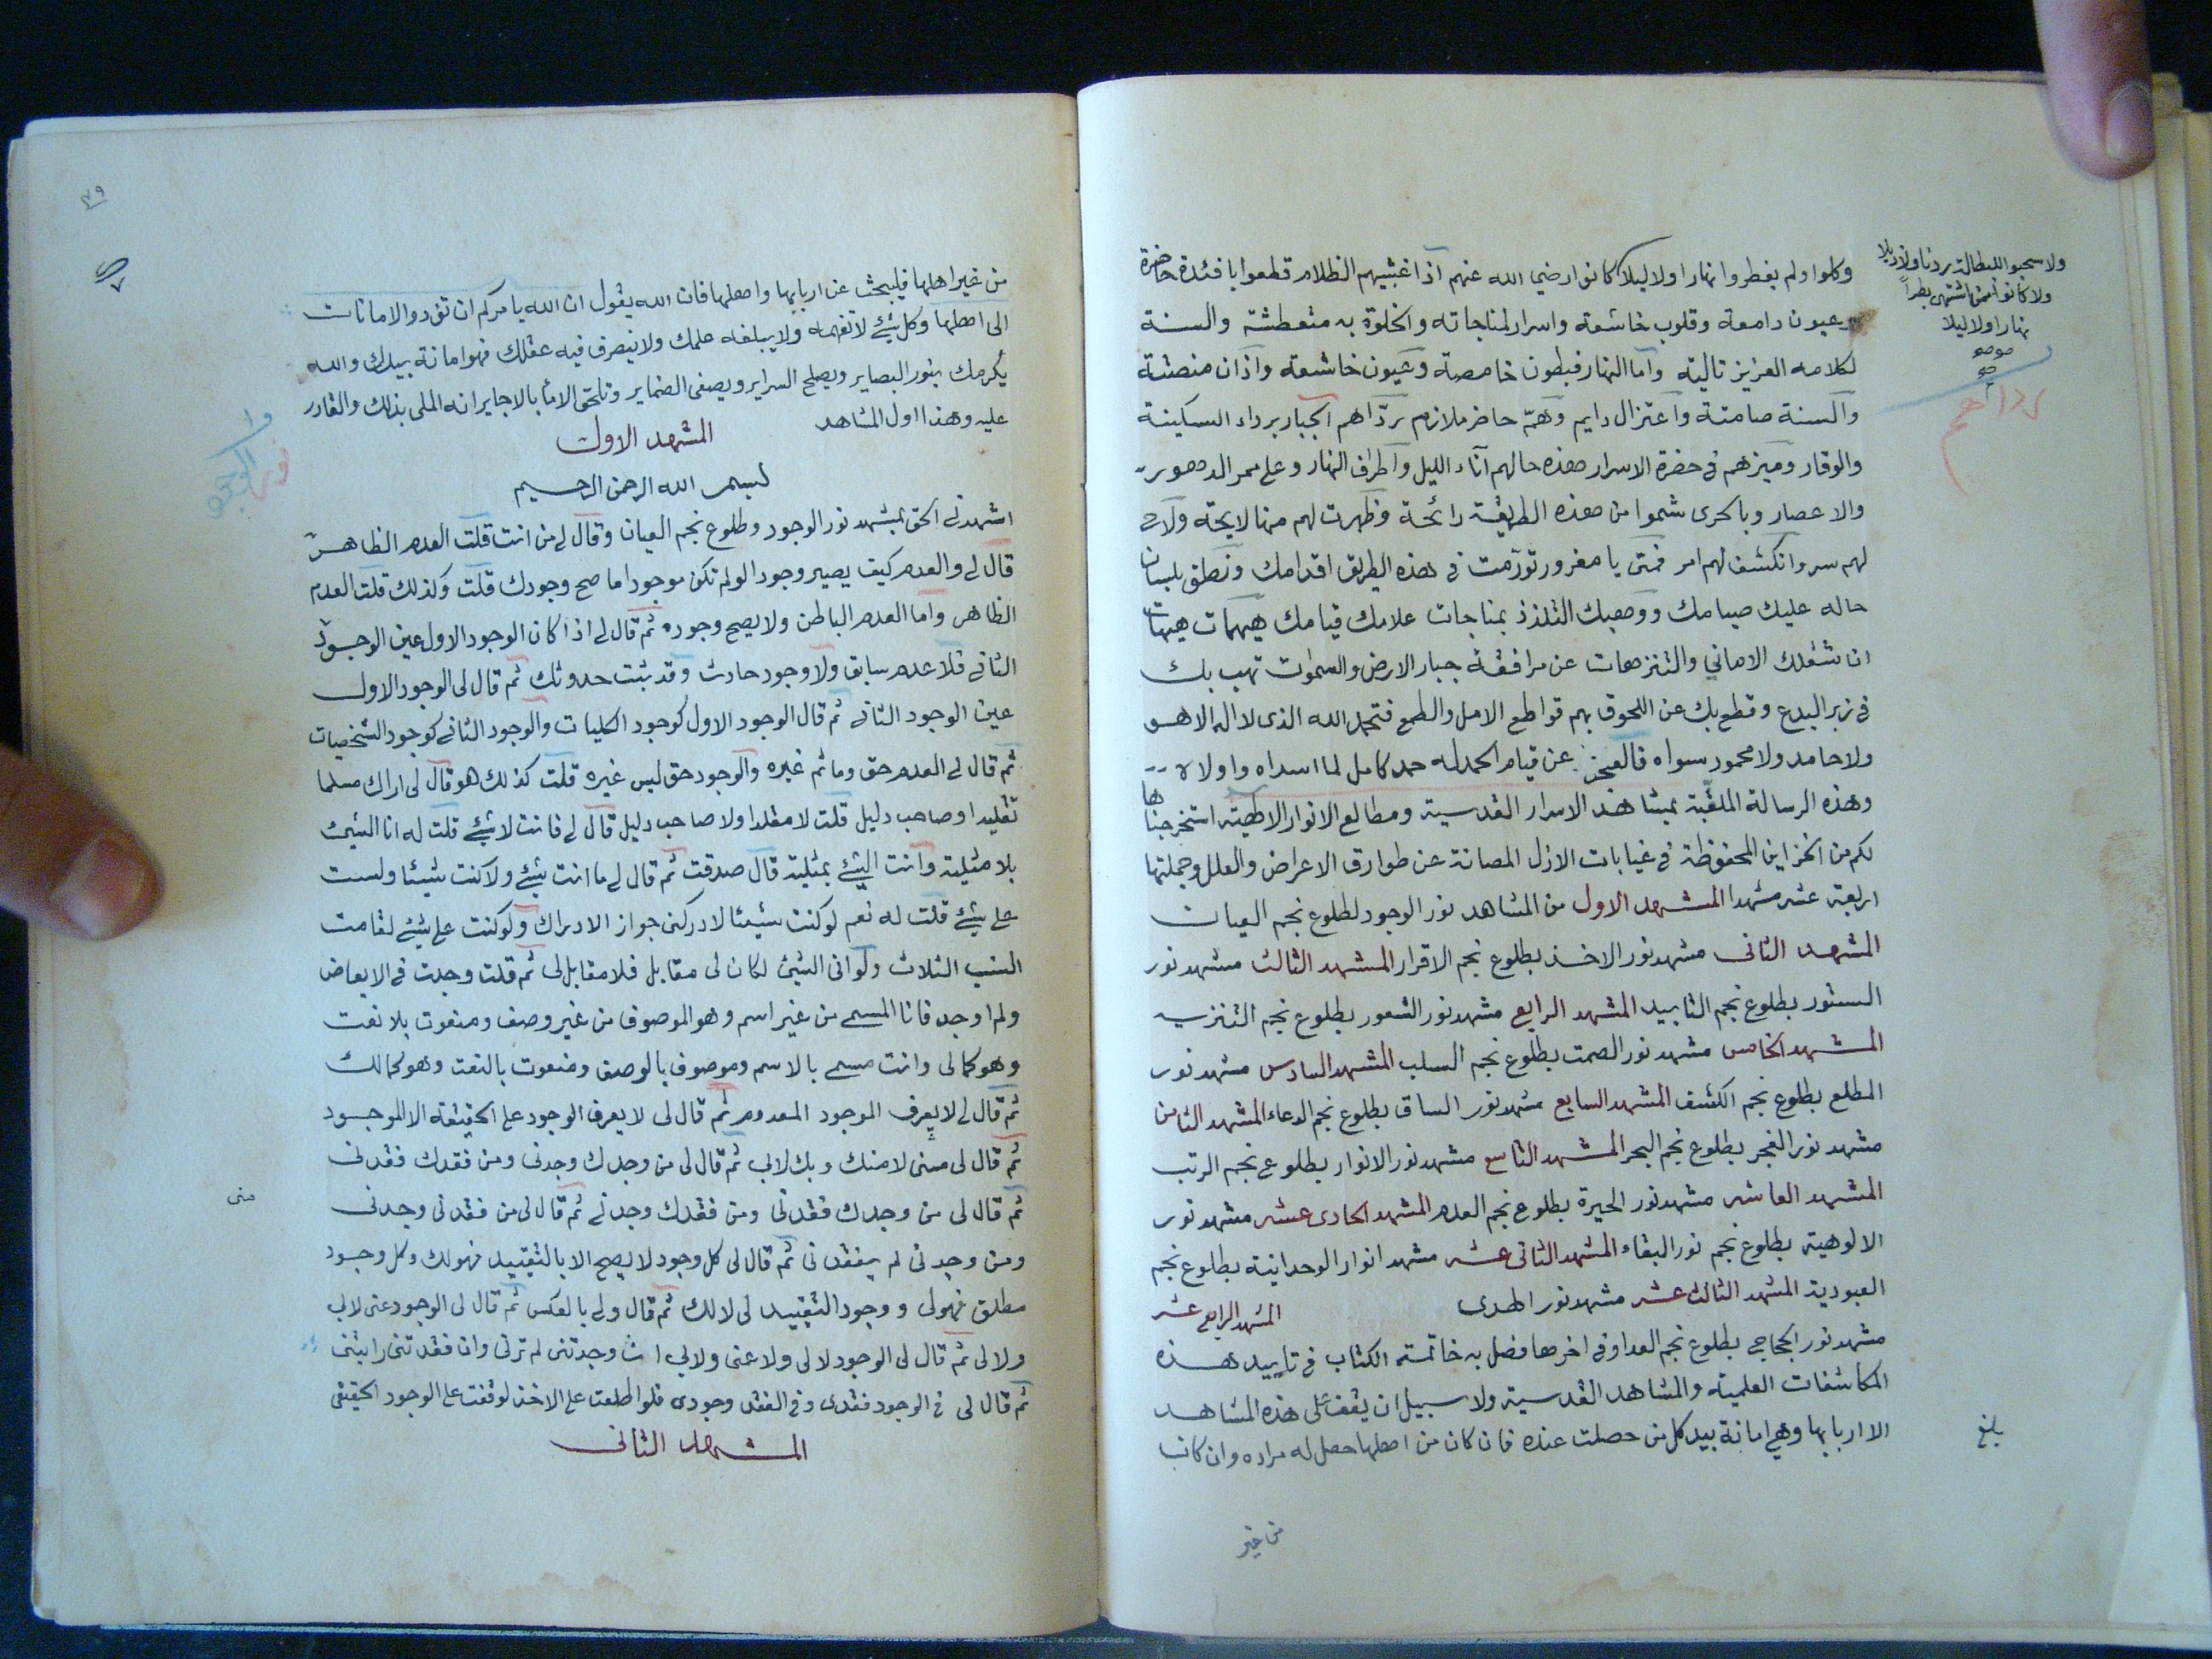 وكلوا ولم يفطروا نهارا ولا ليلا كانوا رضي الله عنهم اذا غشيهم الظلام قطعوا بافئدة حاضرة
وعيون دامعة وقلوب خاشعة واسرار لمناجاته والخلوة به متعطشة والسنة
لكلامه العزيز تالية واما النهار فبطون خامصة وعيون خاشعة واذان منصتة
والسنة صامتة واعتزال دايم وهمّ حاضر ملازم ردّاهم الجبار برداء السكينة
والوقار وميزهم في حضرة الاسرار هذه حالهم آناء الليل واطراف النهار وعلى ممر الدهور
والاعصار وبالحرى شموا من هذه الطريقة رائحة وظهرت لهم منها لايحة ولاح
لهم سر وانكشف لهم امر فمتى يا مغرور تورّمت في هذه الطريق اقدامك ونطق بلسان
حاله عليك صيامك ووهبك التلذذ بمناجات علامك قيامك هيهات هيهات
ان شغلك الاماني والتنزهات عن مرافقة جبار الارض والسموات تهب بك
في زبر البدع وقطع بك عن اللحوق بهم قواطع الامل والطمع فتحمد الله الذى لا اله الا هو
ولا حامد ولا محمود سواه فالعجز عن قيام الحمد له حمد كامل لما اسداه واولاه
وهذه الرسالة الملقّبة بمشاهد الاسرار القدسية ومطالع الانوار الالهية استخرجناها
لكم من الخزاين المحفوظة في غيابات الازل المصانة عن طوارق الاعراض والعلل وجملتها
اربعة عشر مشهدا المشهد الاول من المشاهد نور الوجود لطلوع نجم العيان
المشهد الثانى مشهد نور الاخذ بطلوع نجم الاقرار المشهد الثالث مشهد نور
الستور بطلوع نجم التاييد المشهد الرابع مشهد نور الشعور بطلوع نجم التنزيه
المشهد الخامس مشهد نور الصمت بطلوع نجم السلب المشهد السادس مشهد نور
المطلع بطلوع نجم الكشف المشهد السابع مشهد نور الساق بطلوع نجم الدعاء المشهد الثامن
مشهد نور الفجر بطلوع نجم البحر المشهد التاسع مشهد نور الانوار بطلوع نجم الرتب
المشهد العاشر مشهد نور الحيرة بطلوع نجم العدم المشهد الحادى عشر مشهد نور
الالوهية بطلوع نجم نور البقاء المشهد الثانى عشر مشهد انوار الوحدانية بطلوع نجم
العبودية المشهد الثالث عشر مشهد نور الهدى المشهد الرابع عشر
مشهد نور الحجاجي بطلوع نجم العدا وفى اخرها فصل به خاتمة الكتاب في تاييد هذه
المكاشفات العلمية والمشاهد القدسية ولا سبيل ان يقف على هذه المشاهد
الا اربابها وهي امانة بيد كل من حصلت عنده فان كان من اهلها حصل له مراده وان كانت
من غير
ولا كانوا ممن اشتهى بطرا
نهارا ولا ليلا
صح صح
صح
رداهم
بلغ
٣٩
من غير اهلها فليبحث عن اربابها واهلها فان الله يقول ان الله يامركم ان تؤدوا الامانات
الى اهلها وكل شئ لا تفهمه ولا يبلغه علمك ولا يتصرف فيه عقلك فهو امانة بيدك والله
يكرمك بنور البصاير ويصلح السراير ويصفى الضماير وتلحق الاما بالاجاير انه الملى بذلك والقادر
عليه وهذا اول المشاهد
المشهد الاول
بسم الله الرحمن الرحيم
اشهدنى الحق بمشهد نور الوجود وطلوع نجم العيان وقال لى من انت قلت العدم الظاهر
قال لى والعدم كيف يصير وجودا لو لم تكن موجودا ما صح وجودك قلت وكذلك قلت العدم
الظاهر واما العدم الباطن ولا يصح وجوده ثم قال لى اذا كان الوجود الاول عين الوجود
الثانى فلا عدم سابق ولا وجود حادث وقد ثبتت حدوثك ثم قال لى الوجود الاول
عين الوجود الثانى ثم قال الوجود الاول كوجود الكليات والوجود الثانى كوجود الشخصيات
ثم قال لى العدم حق وما ثم غيره والوجود حق ليس غيره قلت كذلك هو قال لى اراك مسلما
تقليدا او صاحب دليل قلت لا مقلدا ولا صاحب دليل قال لى فانت لا شئ قلت له انا الشئ
بلا مثلية وانت الشئ بمثلية قال صدقت ثم قال لى ما انت بشئ ولا كنت شيئا ولست
على شئ قلت له نعم لو كنت شيئا لادركنى جواز الادراك ولو كنت على شئ لقامت
النسب الثلاث ولو انى الشئ لكان لى مقابل فلا مقابل لى ثم قلت وجدت فى الابعاض
ولم اوجد فانا المسمى من غير اسم وهو الموصوف من غير وصف ومنعوت بلا نعت
وهو كمالى وانت مسمى بالاسم وموصوف بالوصف ومنعوت بالنعت وهو كمالك
ثم قال لى لا يعرف الموجود المعدوم ثم قال لى لا يعرف الوجود على الحقيقة الا الموجود
ثم قال لى منى لا منك وبك لا بى ثم قال لى من وجدك وجدنى ومن فقدك فقدنى
ثم قال لى من وجدك فقدنى ومن فقدك وجدنى ثم قال لى من فقدنى وجدنى
ومن وجدنى لم يفقدنى ثم قال لى كل وجود لا يصح الا بالتقييد فهو لك وكل وجود
مطلق فهو لى ووجود التقييد لى لا لك ثم قال ولى بالعكس ثم قال لى الوجود عنى لا بى
ولا لى ثم قال لى الوجود لا لى ولا عنى ولا بى ان وجدتنى لم ترنى وان فقدتنى رايتنى
ثم قال لى فى الوجود فقدى وفى الفقد وجودى فلو اطلعت على الاخذ لوقفت على الوجود الحقيقى
المشهد الثانى
منى